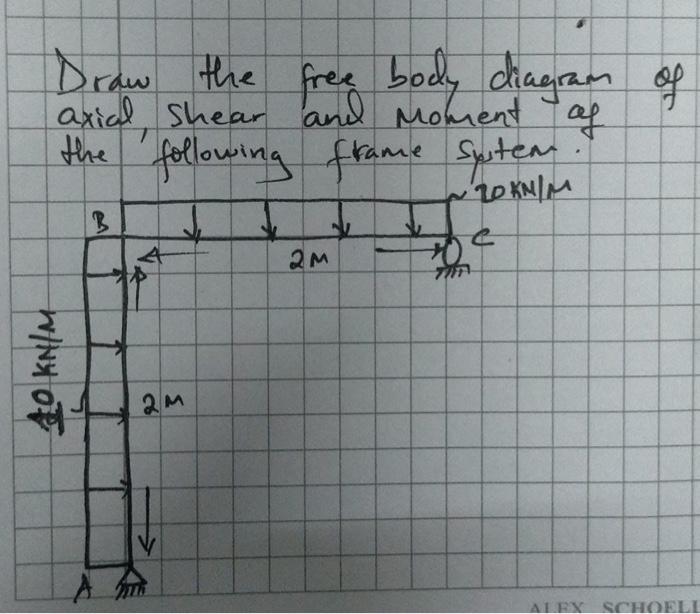 Draw the free body diagram of
axial, shear and Moment of
the following frame system.
20 KN/M
B
C
2M
10 KN/M
2M
A
ALEX SCHOELL